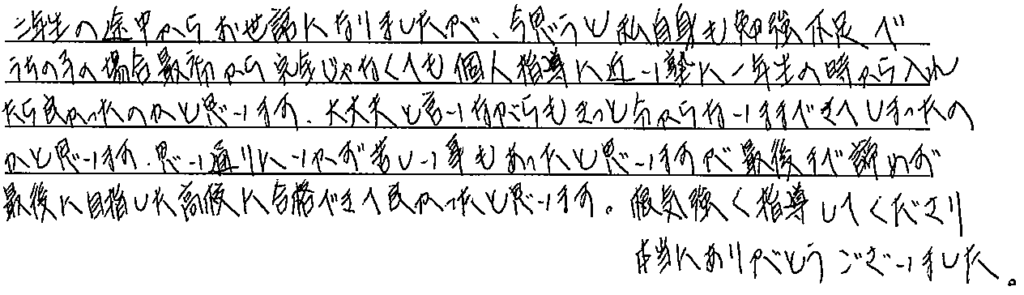 二年生の途中からお世話になりましたが、今思うと私自身も勉強不足で
うちの子の場合最初から完点じゃなくても個人指導に近い塾に一年生の時から入れ
たら良かったのかと思います。大丈夫と言いながらもきっと分からないままできてしまったの
かと思います。思い通りにいかず苦しい事もあったと思いますが最後まで諦めず
最後に目指した高校に合格できて良かったと思います。根気強く指導してくださり
本当にありがとうございました。